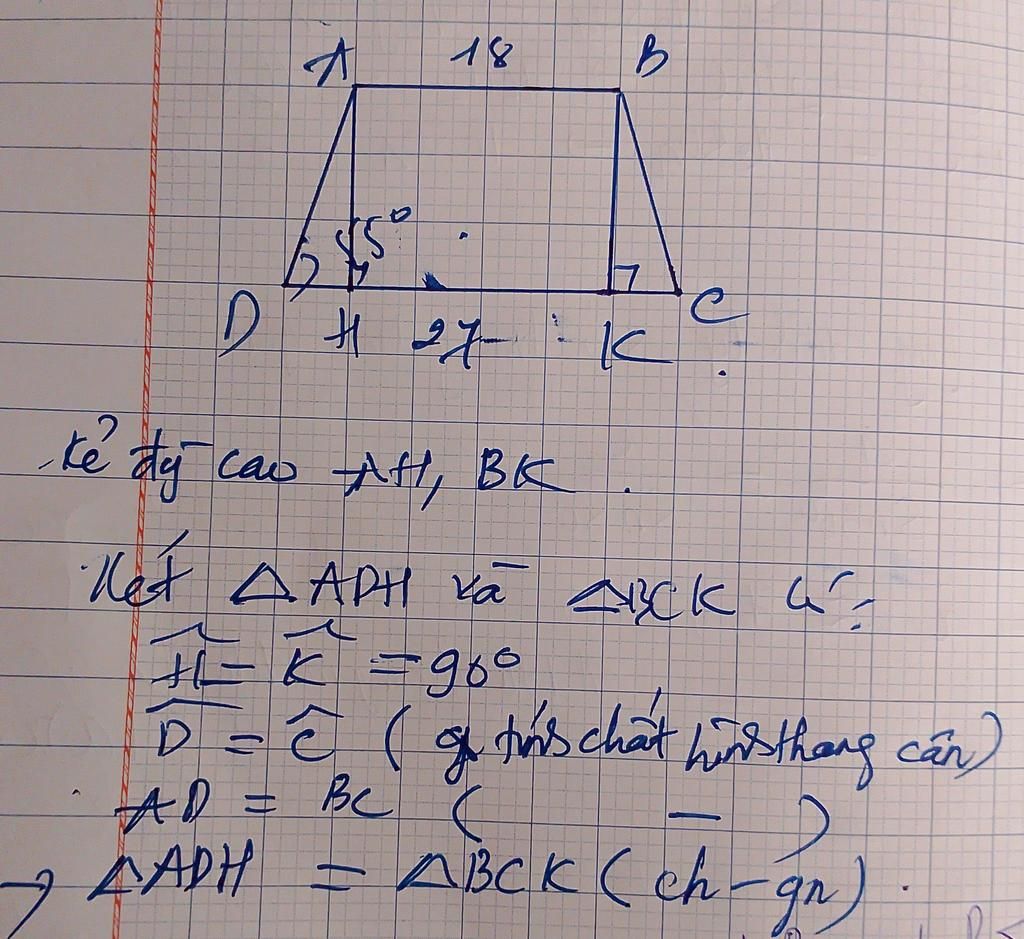 A 18 B
55°
D H 27 K C
Kẻ đg cao AH, BK.
Xét △ADH và △BCK có:
Ĥ = K̂ = 90°
D̂ = Ĉ ( tính chất hình thang cân)
AD = BC ( — )
→ △ADH = △BCK (ch-gn).